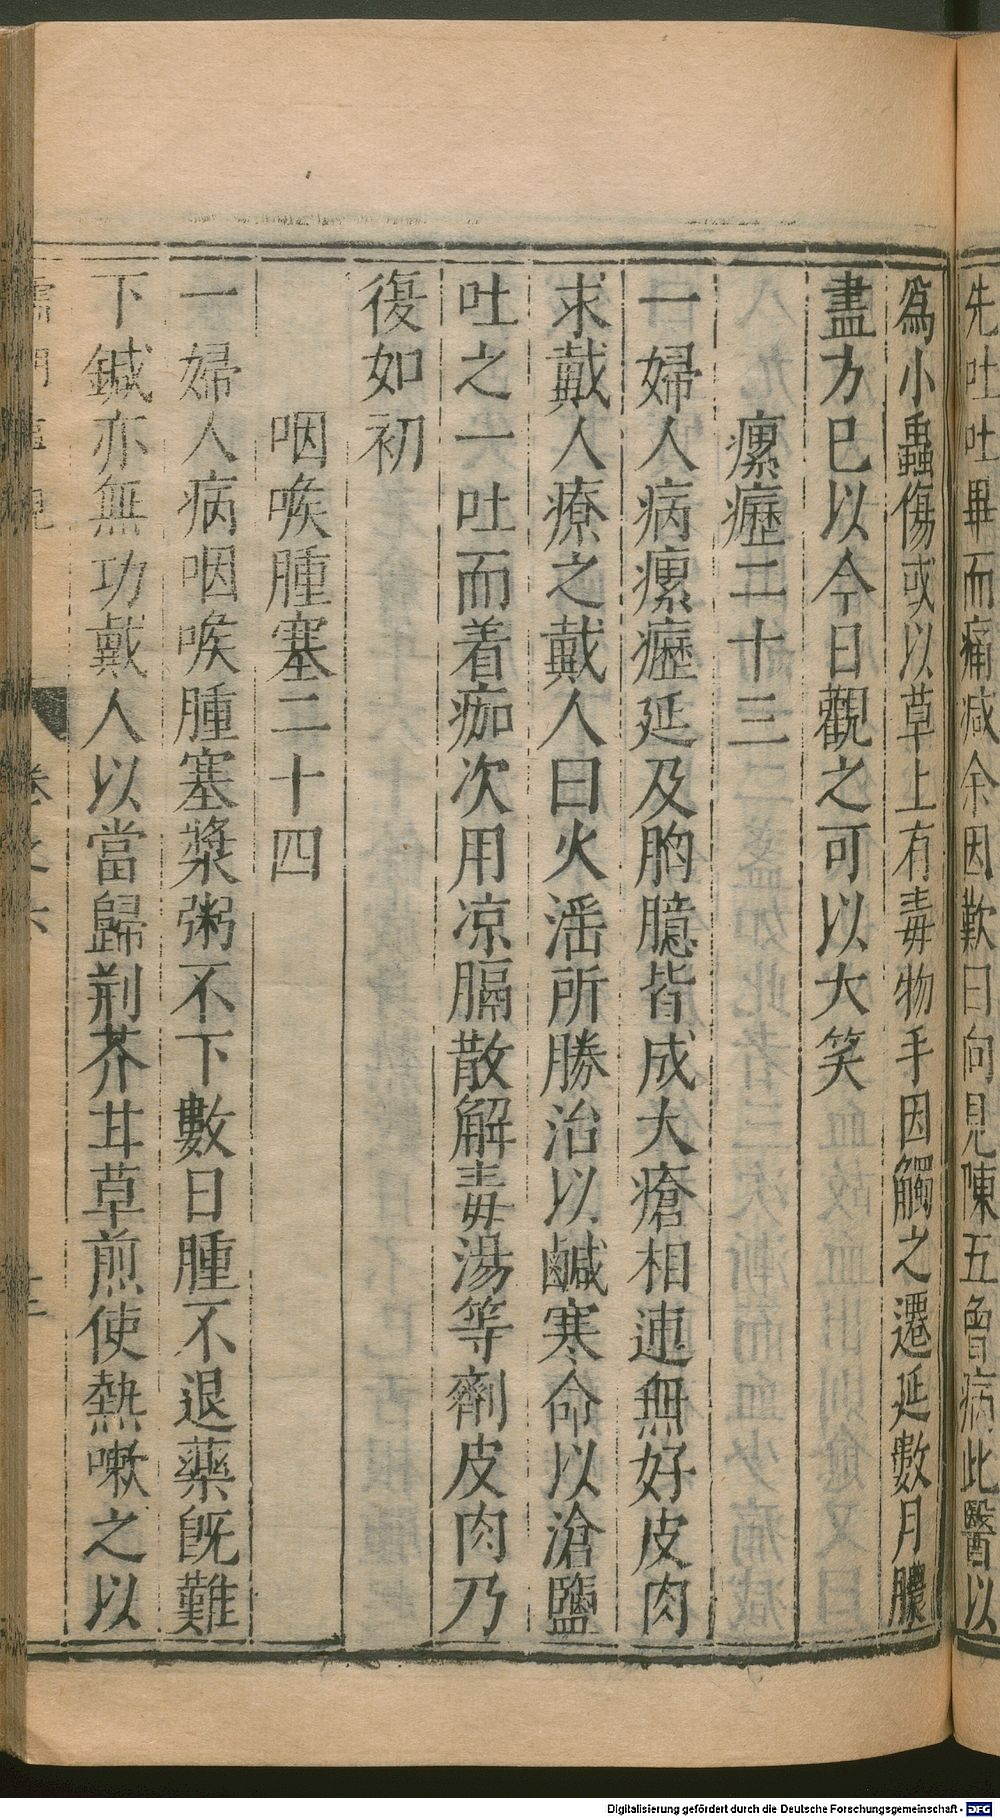 先吐吐畢而痛減余因歎曰向見陳五曾病此醫以
爲小蟲傷或以草上有毒物手因觸之遷延數月膿
盡方已以今日觀之可以大笑
瘰癧二十三
一婦人病瘰癧延及胷臆皆成大瘡相連無好皮肉
求戴人療之戴人曰火淫所勝治以鹹寒命以滄鹽
吐之一吐而着痂次用凉膈散解毒湯等劑皮肉乃
復如初
咽喉腫塞二十四
一婦人病咽喉腫塞漿粥不下數日腫不退藥旣難
下鍼亦無功戴人以當歸荆芥甘草煎使熱嗽之以
儒門事親 卷之六
Digitalisierung gefördert durch die Deutsche Forschungsgemeinschaft - DFG